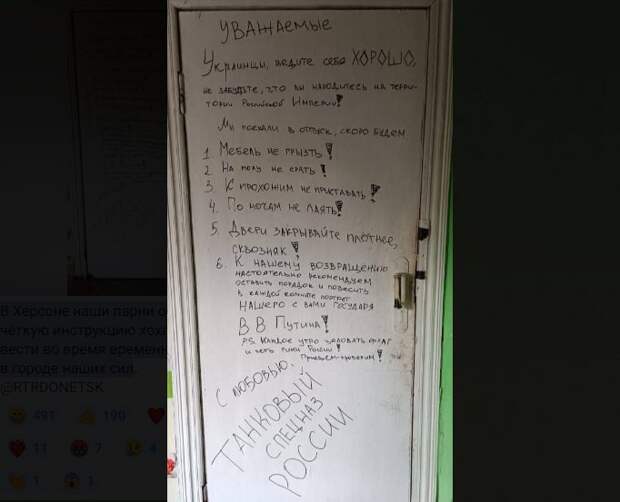 УВАЖАЕМЫЕ
Украинцы, ведите себя ХОРОШО,
не забудьте, что вы находитесь на терри-
тории Российской Империи!
Мы поехали в отпуск, скоро будем
1. Мебель не грызть!
2. На полу не срать!
3. К прохожим не приставать!
4. По ночам не лаять!
5. Двери закрывайте плотнее,
сквозняк!
6. К нашему возвращению
настоятельно рекомендуем
оставить порядок и повесить
в каждой комнате портрет
НАШЕГО С ВАМИ ГОСУДАРЯ
В В Путина!
P.S. Каждое утро целовать флаг
и петь гимн России!
Приедем-проверим!
С любовью.
ТАНКОВЫЙ
СПЕЦНАЗ
РОССИИ
В Херсоне наши парни
чёткую инструкцию
вести во время
в городе наших сил.
@RTRDONETSK
491 190
11 7 4
1 1